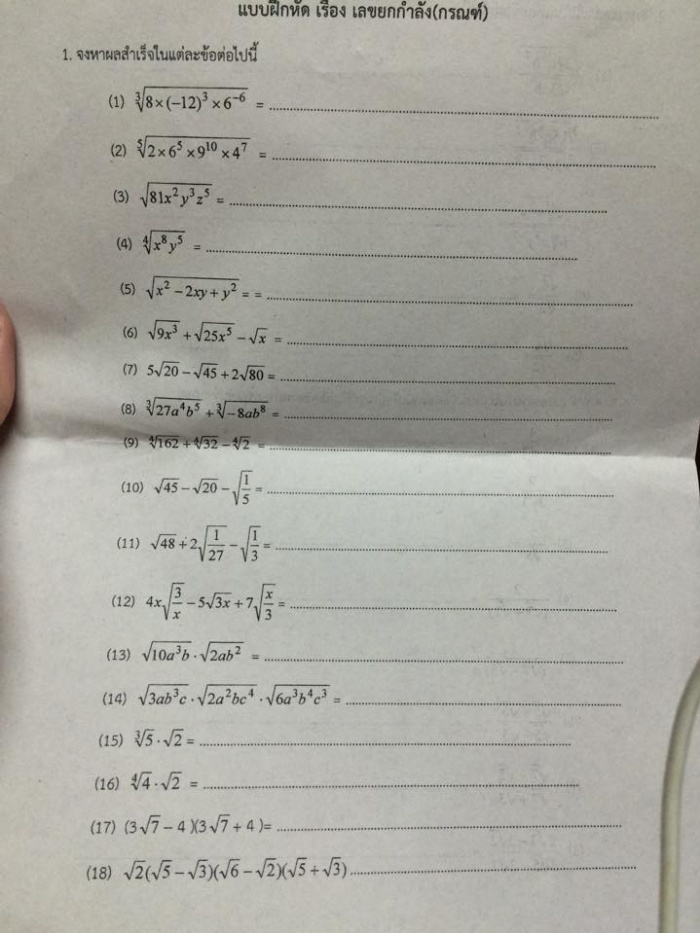 แบบฝึกหัด เรื่อง เลขยกกำลัง(กรณฑ์)
1. จงหาผลสำเร็จในแต่ละข้อต่อไปนี้
(1) ∛(8×(−12)³×6⁻⁶) = ........................
(2) ⁵√(2×6⁵×9¹⁰×4⁷) = ........................
(3) √(81x²y³z⁵) = ........................
(4) ∜(x⁸y⁵) = ........................
(5) √(x²−2xy+y²) = = ........................
(6) √(9x³) + √(25x⁵) − √x = ........................
(7) 5√20 − √45 + 2√80 = ........................
(8) ∛(27a⁴b⁵) + ∛(−8ab⁸) = ........................
(9) ∜162 + ∜32 − ∜2 = ........................
(10) √45 − √20 − √(1/5) = ........................
(11) √48 + 2√(1/27) − √(1/3) = ........................
(12) 4x√(3/x) − 5√(3x) + 7√(x/3) = ........................
(13) √(10a³b) · √(2ab²) = ........................
(14) √(3ab³c) · √(2a²bc⁴) · √(6a³b⁴c³) = ........................
(15) ∛5 · √2 = ........................
(16) ∜4 · √2 = ........................
(17) (3√7 − 4)(3√7 + 4)= ........................
(18) √2(√5 − √3)(√6 − √2)(√5 + √3) ........................